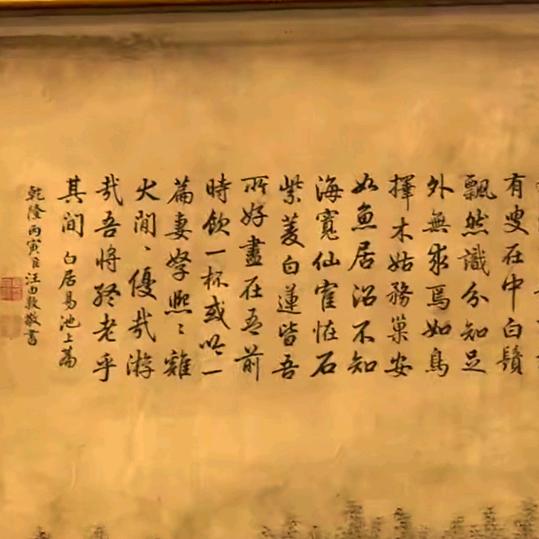 有叟在中白鬚
飄然識分知足
外無求焉如鳥
擇木姑務巢安
如魚居沼不知
海寬仙寉恠石
紫菱白蓮皆吾
所好盡在吾前
時飲一杯或吟一
篇妻孥熙〻雞
犬閒〻優哉游
哉吾將終老乎
其間 白居易池上篇
乾隆丙寅臣汪由敦敬書